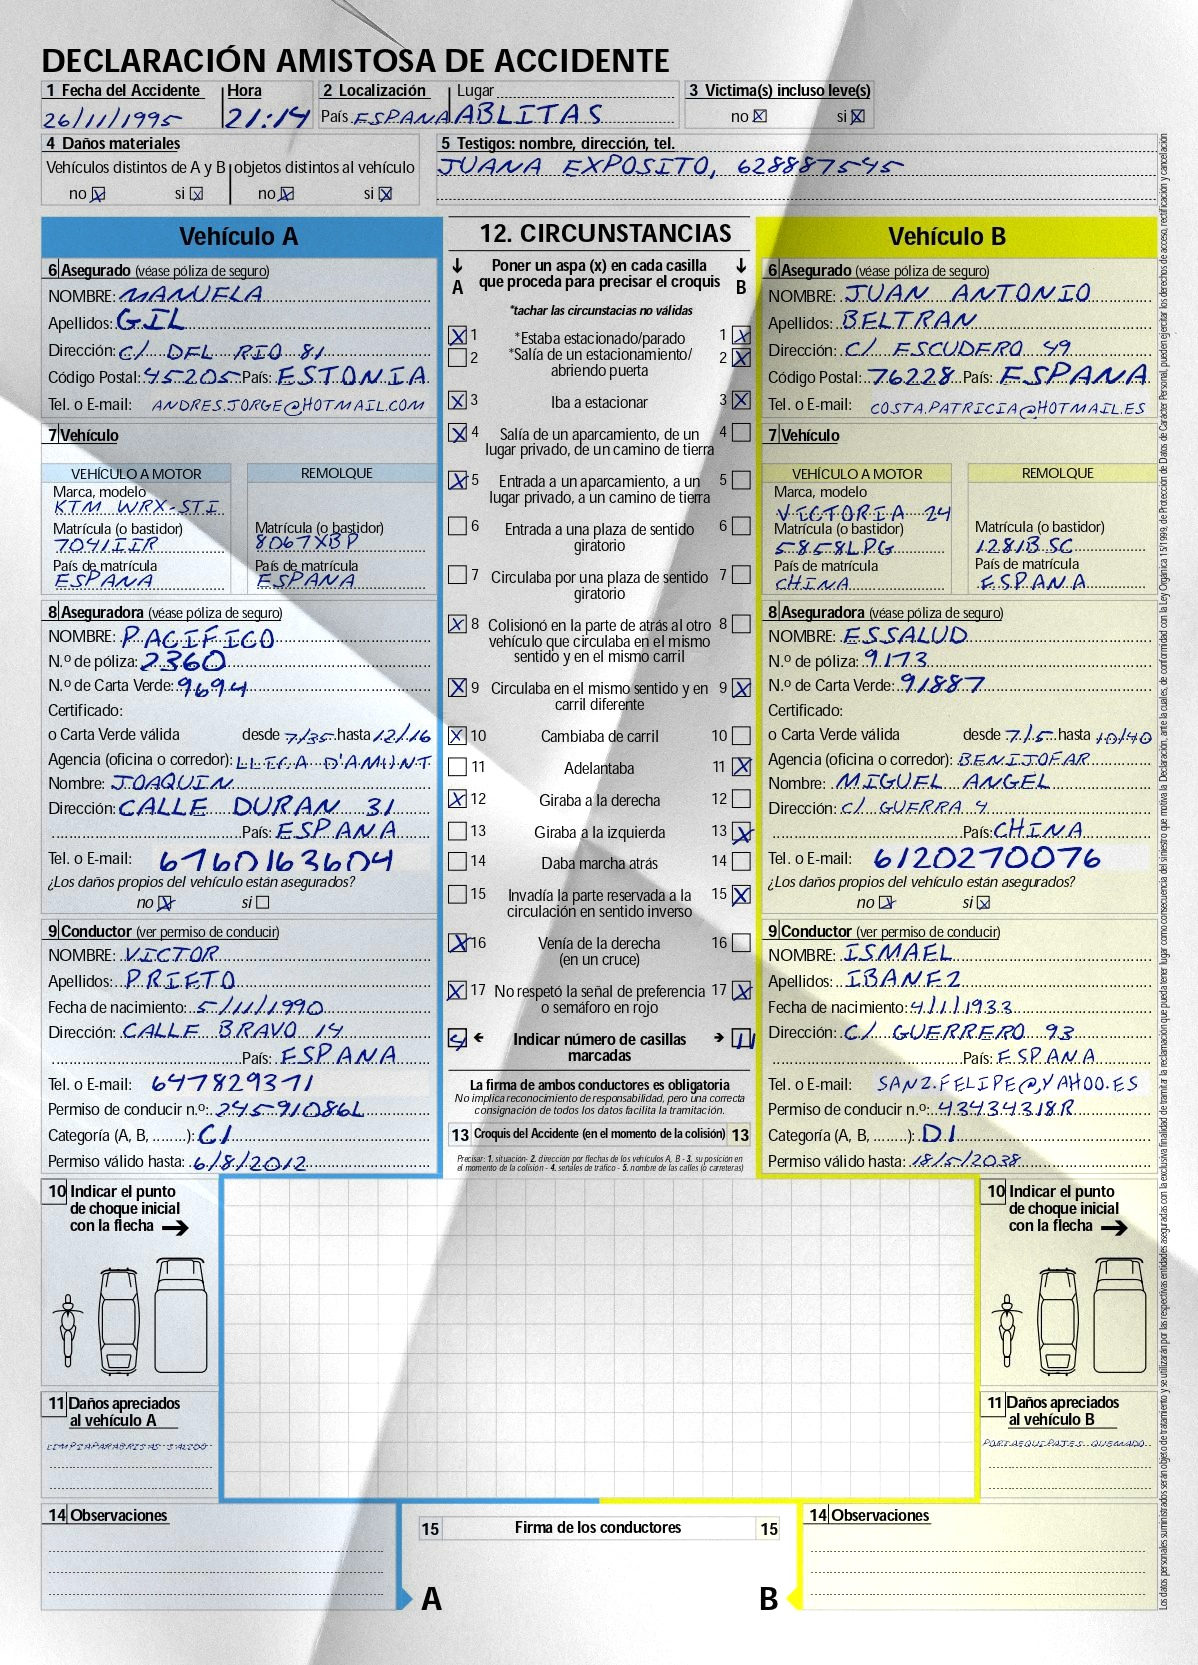 DECLARACIÓN AMISTOSA DE ACCIDENTE
1 Fecha del Accidente Hora 2 Localización Lugar 3 Victima(s) incluso leve(s)
26/11/1995 21:14 País ESPANA ABLITAS no si
4 Daños materiales 5 Testigos: nombre, dirección, tel.
Vehículos distintos de A y B objetos distintos al vehículo JUANA EXPOSITO, 628887545
no si no si
Vehículo A
6 Asegurado (véase póliza de seguro)
NOMBRE: MANUELA
Apellidos: GIL
Dirección: C/ DEL RIO 81
Código Postal: 45205 País: ESTONIA
Tel. o E-mail: ANDRES.JORGE@HOTMAIL.COM
7 Vehículo
VEHÍCULO A MOTOR REMOLQUE
Marca, modelo
KTM WRX-STI
Matrícula (o bastidor) Matrícula (o bastidor)
7041IIR 8067XBP
País de matrícula País de matrícula
ESPANA ESPANA
8 Aseguradora (véase póliza de seguro)
NOMBRE: PACIFICO
N.º de póliza: 2360
N.º de Carta Verde: 9694
Certificado:
o Carta Verde válida desde 7/35 hasta 12/16
Agencia (oficina o corredor): LLICA D'AMUNT
Nombre: JOAQUIN
Dirección: CALLE DURAN 31
País: ESPANA
Tel. o E-mail: 6760163604
¿Los daños propios del vehículo están asegurados?
no si
9 Conductor (ver permiso de conducir)
NOMBRE: VICTOR
Apellidos: PRIETO
Fecha de nacimiento: 5/11/1990
Dirección: CALLE BRAVO 14
País: ESPANA
Tel. o E-mail: 647829371
Permiso de conducir n.º: 24591086L
Categoría (A, B, ........): C1
Permiso válido hasta: 6/8/2012
12. CIRCUNSTANCIAS
A Poner un aspa (x) en cada casilla que proceda para precisar el croquis B
*tachar las circunstacias no válidas
1 *Estaba estacionado/parado 1
2 *Salía de un estacionamiento/ 2
abriendo puerta
3 Iba a estacionar 3
4 Salía de un aparcamiento, de un 4
lugar privado, de un camino de tierra
5 Entrada a un aparcamiento, a un 5
lugar privado, a un camino de tierra
6 Entrada a una plaza de sentido 6
giratorio
7 Circulaba por una plaza de sentido 7
giratorio
8 Colisionó en la parte de atrás al otro 8
vehículo que circulaba en el mismo
sentido y en el mismo carril
9 Circulaba en el mismo sentido y en 9
carril diferente
10 Cambiaba de carril 10
11 Adelantaba 11
12 Giraba a la derecha 12
13 Giraba a la izquierda 13
14 Daba marcha atrás 14
15 Invadía la parte reservada a la 15
circulación en sentido inverso
16 Venía de la derecha 16
(en un cruce)
17 No respetó la señal de preferencia 17
o semáforo en rojo
Indicar número de casillas 11
marcadas
La firma de ambos conductores es obligatoria
No implica reconocimiento de responsabilidad, pero una correcta
consignación de todos los datos facilita la tramitación.
13 Croquis del Accidente (en el momento de la colisión) 13
Precisar: 1. situación- 2. dirección por flechas de los vehículos A, B - 3. su posición en
el momento de la colisión - 4. señales de tráfico - 5. nombre de las calles (o carreteras)
Vehículo B
6 Asegurado (véase póliza de seguro)
NOMBRE: JUAN ANTONIO
Apellidos: BELTRAN
Dirección: C/ ESCUDERO 49
Código Postal: 76228 País: ESPANA
Tel. o E-mail: COSTA.PATRICIA@HOTMAIL.ES
7 Vehículo
VEHÍCULO A MOTOR REMOLQUE
Marca, modelo
VICTORIA 24
Matrícula (o bastidor) Matrícula (o bastidor)
5858LPG 1281BSC
País de matrícula País de matrícula
CHINA ESPANA
8 Aseguradora (véase póliza de seguro)
NOMBRE: ESSALUD
N.º de póliza: 9173
N.º de Carta Verde: 91887
Certificado:
o Carta Verde válida desde 7/5 hasta 10/40
Agencia (oficina o corredor): BENIJOFAR
Nombre: MIGUEL ANGEL
Dirección: C/ GUERRA 4
País: CHINA
Tel. o E-mail: 6120270076
¿Los daños propios del vehículo están asegurados?
no si
9 Conductor (ver permiso de conducir)
NOMBRE: ISMAEL
Apellidos: IBANEZ
Fecha de nacimiento: 4/1/1933
Dirección: C/ GUERRERO 93
País: ESPANA
Tel. o E-mail: SANZ.FELIPE@YAHOO.ES
Permiso de conducir n.º: 43434318R
Categoría (A, B, ........): D1
Permiso válido hasta: 18/5/2038
10 Indicar el punto
de choque inicial
con la flecha
11 Daños apreciados
al vehículo A
LIMPIAPARABRISAS SALIDO
10 Indicar el punto
de choque inicial
con la flecha
11 Daños apreciados
al vehículo B
PORTAEQUIPAJES QUEMADO
14 Observaciones
15 Firma de los conductores 15
A B
14 Observaciones
Los datos personales suministrados serán objeto de tratamiento y se utilizarán por las respectivas entidades aseguradas con la exclusiva finalidad de tramitar la reclamación que pueda tener lugar como consecuencia del siniestro que motiva la Declaración, ante la cuales, de conformidad con la Ley Orgánica 15/1999, de Protección de Datos de Carácter Personal, pueden ejercitar los derechos de acceso, rectificación y cancelación